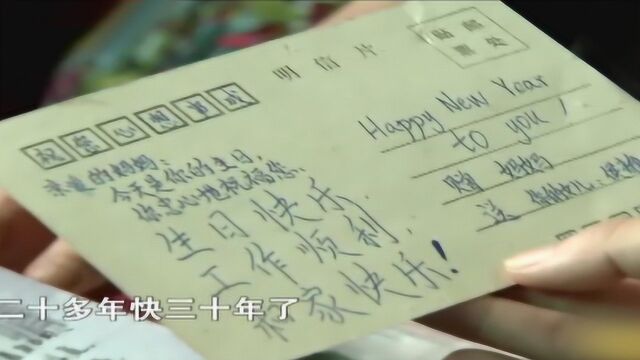 明信片
贴邮
票处
祝您心想事成
亲爱的妈妈:
今天是你的生日,
你衷心地祝福您.
生日快乐,
工作顺利,
和家快乐!
Happy New Year
to you!
赠 妈妈
送
二十多年快三十年了